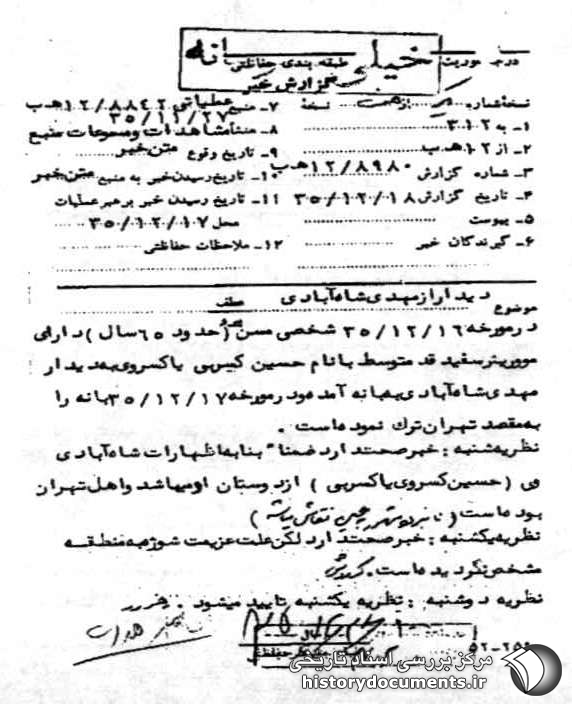 درجه فوریت خیلی طبقه بندی حفاظتی
گزارش خبر
نسخه شماره از نسخه
۱- به ۳۱۲
۲- از ۱۲هـ ب
۳- شماره گزارش ۱۲/۸۹۸۰هـ ب
۴- تاریخ گزارش ۳۵/۱۲/۱۸
۵- پیوست
۶- گیرندگان خبر
۷- منبع عملیاتی ۱۲/۸۸۴۲هـ ب
۳۵/۱۲/۲۷
۸- منشأ مشاهدات ومسموعات منبع
۹- تاریخ وقوع متن خبر
۱۰- تاریخ رسیدن خبر به منبع متن خبر
۱۱- تاریخ رسیدن خبر برهبر عملیات
محل ۳۵/۱۲/۱۷
۱۲- ملاحظات حفاظتی
موضوع دیدار از مهدی شاه آبادی
درمورخه ۳۵/۱۲/۱۶ شخصی مسن (حدود ۶۵سال) دارای
موی سفید قد متوسط بانام حسین کبربی یاکسروی بدیدار
مهدی شاه آبادی ببانه آمده و درمورخه ۳۵/۱۲/۱۷بانه را
به مقصد تهران ترك نموده است .
نظریه شنبه : خبرصحت دارد ضمنا" بنا به اظهارات شاه آبادی
وی (حسین کسروی یاکبربی) از دوستان او میباشد واهل تهران
بوده است (
نظریه یکشنبه : خبرصحت دارد لکن علت عزیمت سوژه به منطقه
مشخص نگردیده است.
نظریه دوشنبه : نظریه یکشنبه تایید میشود .
مرکز بررسی اسناد تاریخی
historydocuments.ir